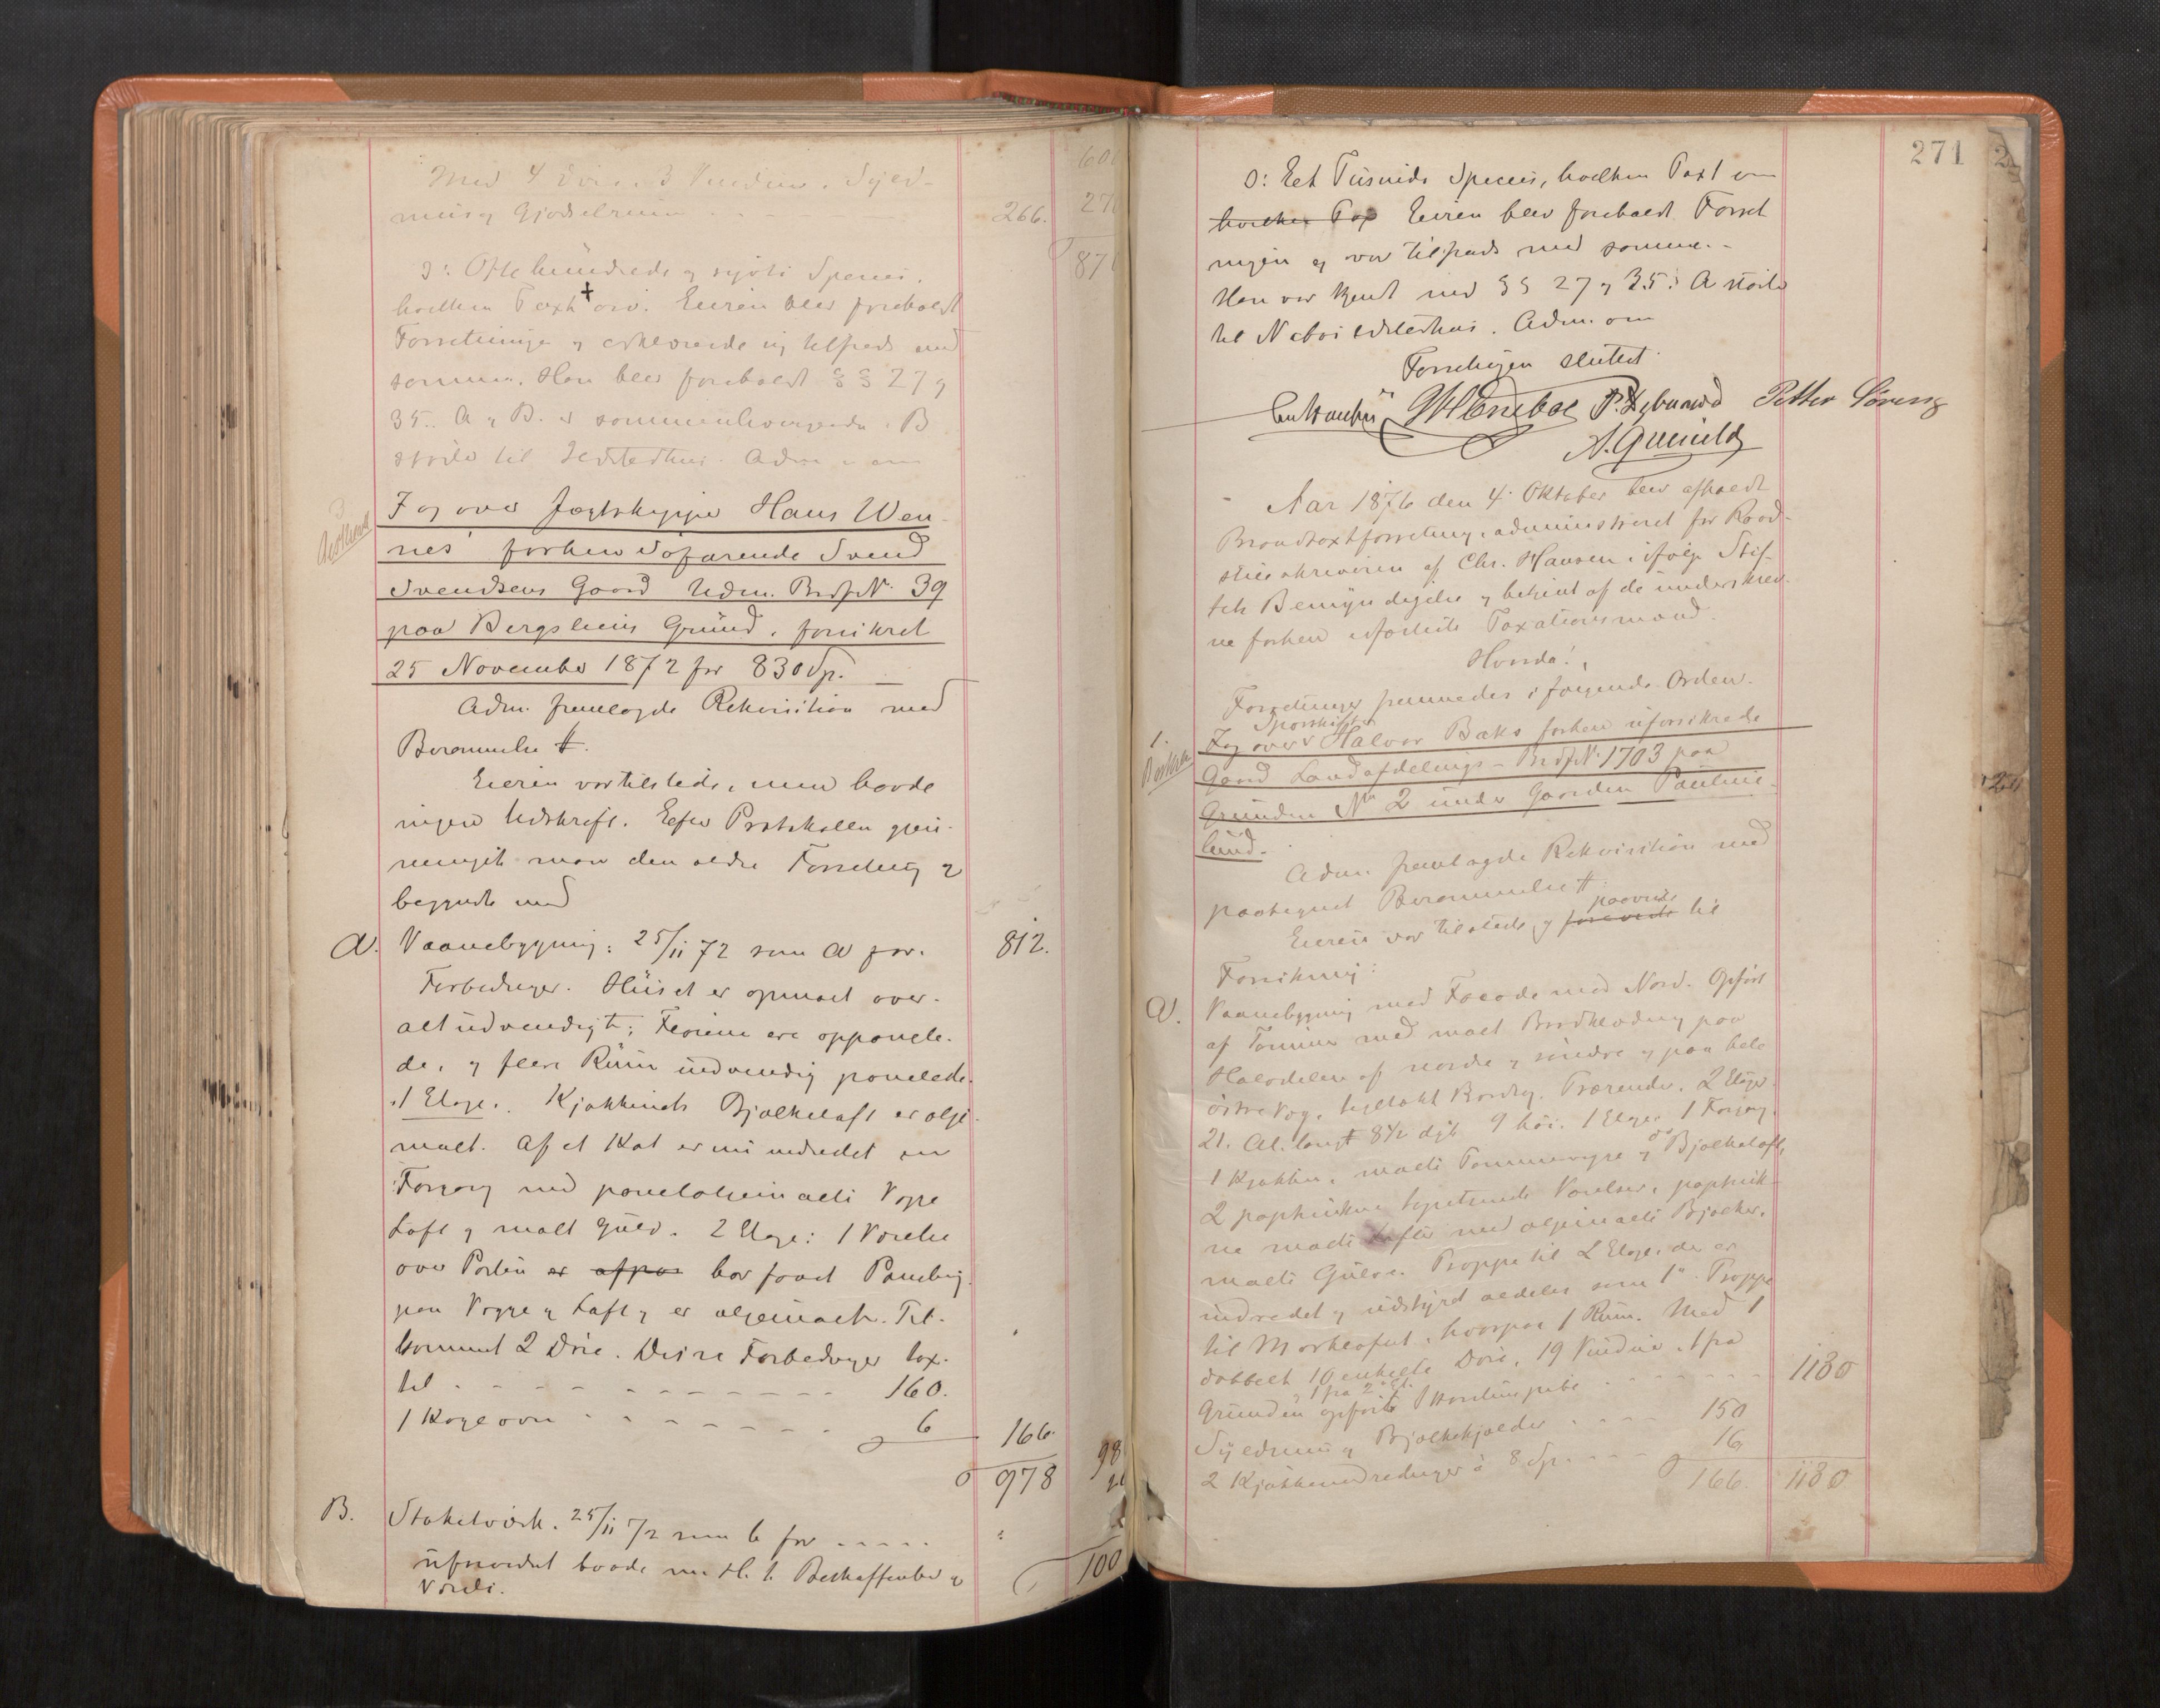 Med 4 Döre, 3 Vinduer, Skjel-
mur og Gjödselrum - - - - 266.
606
270
876
ɔ: Otte hundrede og syvti Species,
hvilken Taxt † osv. Eieren blev foreholdt
Forretningen og erklærede sig tilfreds med
samme. Han blev foreholdt §§ 27 og
35. A og B. er sammenhængende. B
stöder til Ildstedhus. Adm.
3
Fog over Jagtskipper Hans Wen-
nes' forhen Söfarende Svend
Svendsens Gaard Udm. Brdf. No. 39
paa Bergsliens Grund, forsikret
25 November 1872 for 830 Sp. -
Adm. fremlagde Rekvisition med
Berammelse ‡.
Eieren var tilstede, men havde
ingen Udskrift. Efter Protokollen gjen-
nemgik man den ældre Forretning og
begyndte med
A. Vaanebygning: 25/11 72 som A for. 812.
Forbedringer. Huset er opmalt over-
alt udvendigt;
de, og flere Rum indvendig panelede.
1 Etage. Kjökkenets Bjelkeloft er olje-
malt. Af et Kot er nu indredet en
Forgang med panelet oljemalte Vægge
Loft og malt Gulv. 2 Etage: 1 Værelse
over Porten er har faaet Paneling
paa Vægge og Loft og er oljemalt. Til-
kommet 2 Döre. Disse Forbedringer tax.
til - - - - - - - - 160.
1 Kogeovn - - - - - - 6 166.
978
98
B. Staketværk. 25/11 72 som b for - - - - -
uforandret baade m. H. t. Beskaffenhed og
Værdi.
100
271
ɔ: Eet Tusinde Species, hvilken Taxt osv.
hvilken Tax Eieren blev foreholdt Forret
ningen og var tilfreds med samme. -
Han var kjendt med §§ 27 og 35. A stöder
til Nabo Ildstedhus. Adm. osv.
Forretningen sluttet.
Chr Hansen
Aar 1876 den 4. Oktober blev afholdt
Brandtaxtforretning, administreret for Raad-
stueskriveren af Chr. Hansen ifölge Stif-
tets Bemyndigelse og betjent af de underskrev-
ne forhen edfæstede Taxationsmænd.
Forretninger fremmedes i fölgende Orden.
1.
Sporskifter
Fog over Halvor Baks forhen uforsikrede
Gaard Landafdelings-Brdf. No. 1703 paa
Grunden No 2 under Gaarden Pauline-
lund.
Adm. fremlagde Rekvisition med
paategnet Berammelse ‡.
paaviste
Eieren var tilstede og foreviste til
Forsikring:
A. Vaanebygning med Facade mod Nord. Opfört
af Tömmer med malt Bordklædning paa
Halvdelen af nordre og söndre og paa hele
östre Væg, tegltækt Bordtag, Tværender. 2 Etager.
21. Al. lang 8 1/2 dyb 9 höi. 1 Etage. 1 Forgang,
1 Kjökken, malte Tömmervægge og do Bjelkeloft,
2 papstrukne tapetserede Værelser, papstruk-
ne malte Lofter med oljemalte Bjelker,
malte Gulve. Trappe til 2 Etage, der er
indredet og udstyret aldeles som 1ste. Trappe
til Mörkeloftet, hvorpaa 1 Rum. Med 1
dobbelt 10 enkelte Döre, 19 Vinduer, 1 fra
og 1 fra 2 Et.
Grunden opförte Skorstenspibe - - - - - 1180
Skjelmur og Bjelkekjælder - - - - 150
2 Kjökkenindredninger à 8 Sp. - - - 16
166 1180